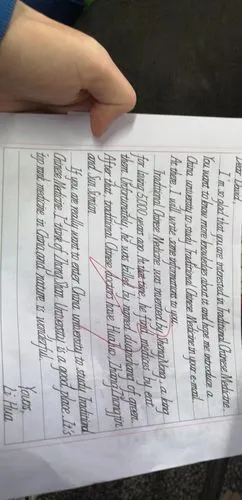 Dear David,
I'm so glad that you are interested in Traditional Chinese Medicine.
You want to know more knowledges about it and hope me introduce a
China university to study Traditional Chinese Medicine in your e-mail.
At there, I will write some informations to you.
Traditional Chinese Medicine was invented by Shengnong, a king
for living 5000 years ago. At that time, he tried medicines by eat
them. Unfortunately, he was killed by named duanchang a green.
After that, traditional Chinese doctors have Hua Tuo, Zhang Zhongjin
and Sun Simiao.
If you are really want to enter China university to study Traditional
Chinese Medicine. I think of Zhong Shan University is a good place. It's
top one medicine in China, and nature is wonderful.
Yours,
Li Hua